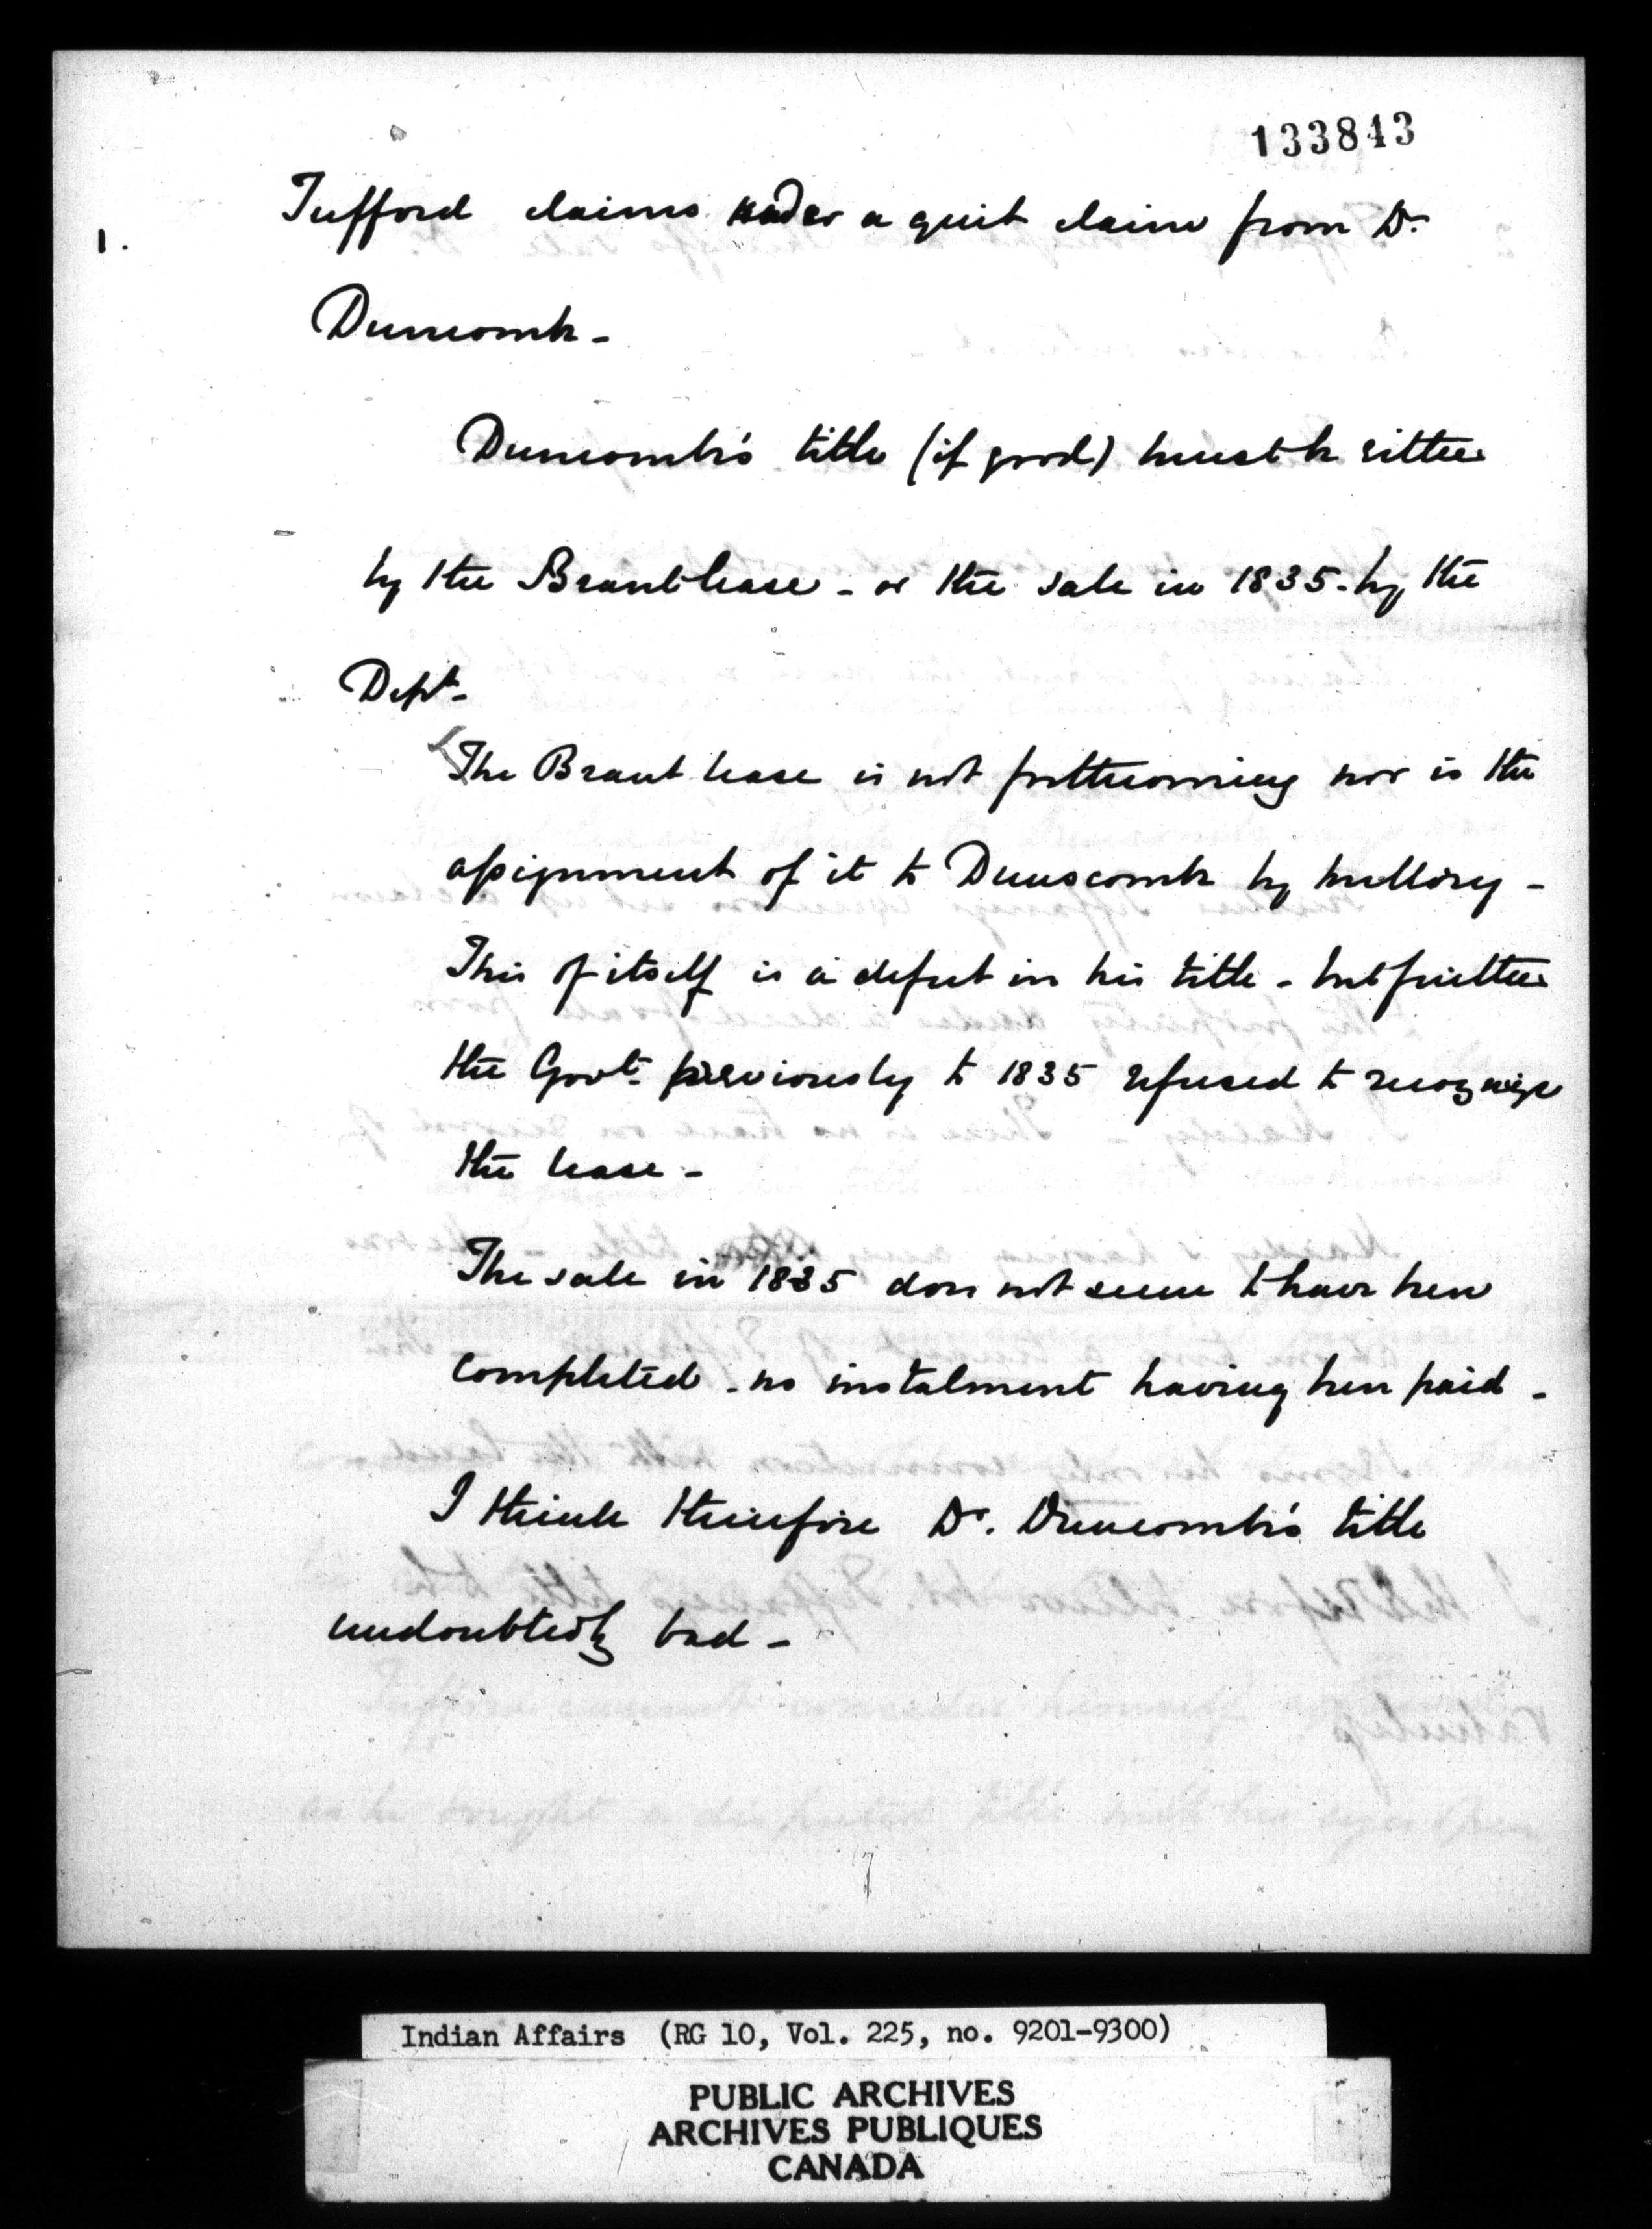 133843
1.
Tufford claims under a quit claim from Dr.
Duncombe -
Duncombe's title (if good) must be either
by the Brant lease - or the sale in 1835 - by the
Dept -
The Brant lease is not forthcoming nor is the
assignment of it to Dunscombe by
This of itself is a defect in his title - but further
the Govt. previously to 1835 refused to recognize
the lease -
The sale in 1835 does not seem to have been
completed - no instalment having been paid -
I think therefore Dr. Duncombe's title
undoubtedly bad -
7
Indian Affairs (RG 10, Vol. 225, no. 9201-9300)
PUBLIC ARCHIVES
ARCHIVES PUBLIQUES
CANADA